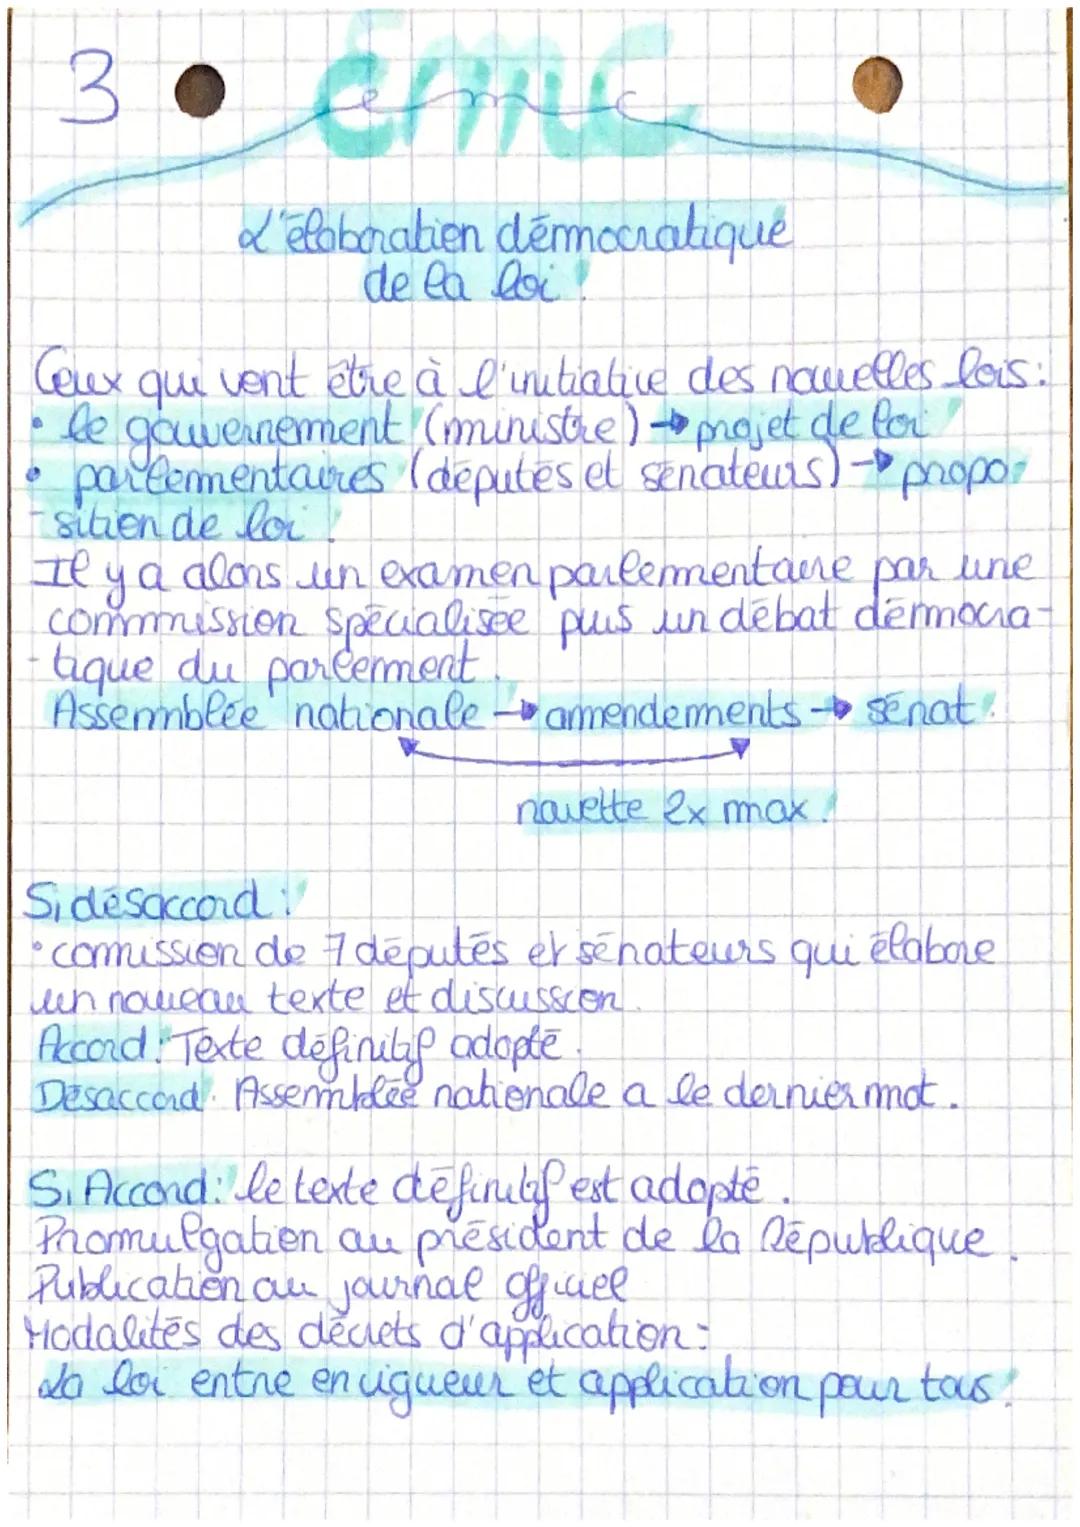 3
Emc
emc
L'élaboration démocratique
de la loi.
Ceux qui vont être à l'initiative des nouvelles lois:
• le gouvernement (ministre) → projet de loi
• parlementaires (députés et sénateurs) → propo-
-sition de loi.
Il y a alors un examen parlementaire par une
commission spécialisée puis un débat démocra-
-tique du parlement.
Assemblée nationale → amendements → sénat.
navette 2x max.
Si désaccord:
• comission de 7 députés et sénateurs qui élabore
un nouveau texte et discussion.
Accord: Texte définitif adopté.
Désaccord. Assemblée nationale a le dernier mot.
Si Accord: le texte définitif est adopté.
Promulgation au président de la République.
Publication au journal officiel
Modalités des décrets d'application:
La loi entre en vigueur et application pour tous.